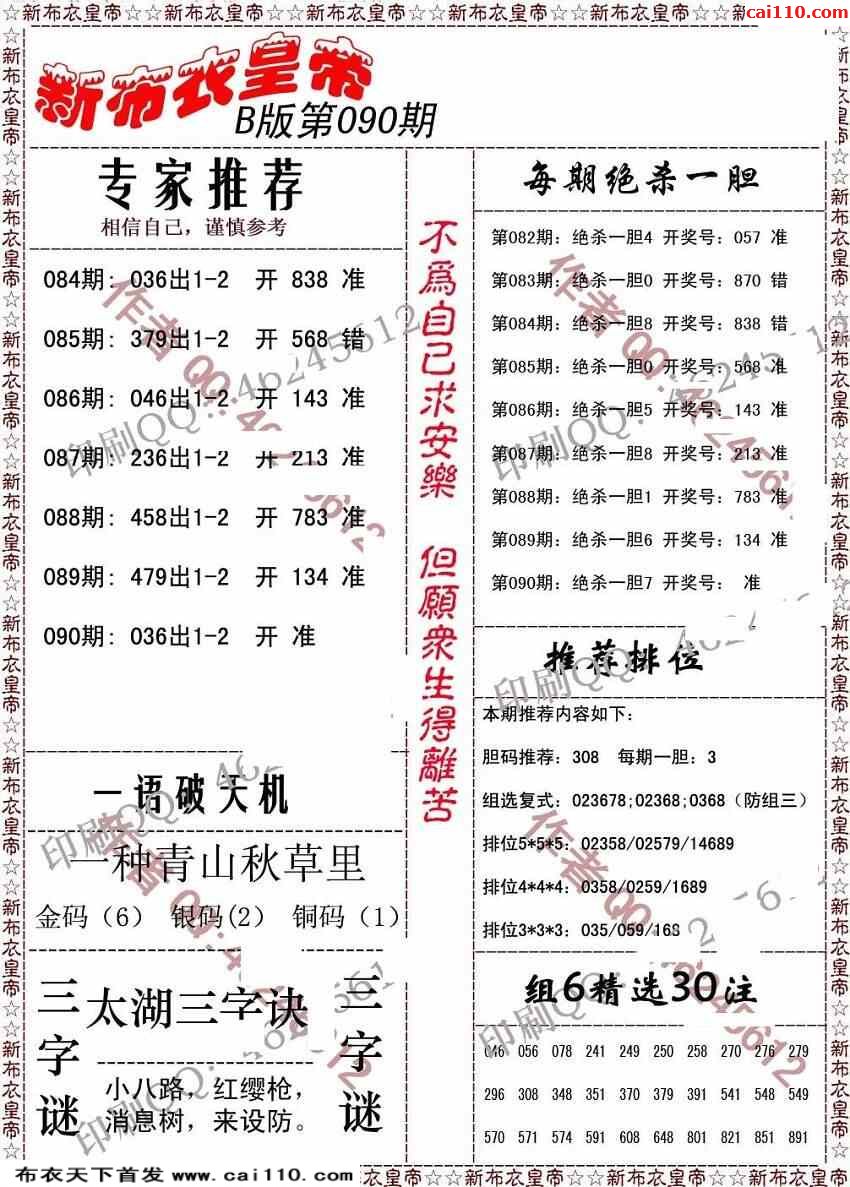 ☆☆新布衣皇帝☆☆新布衣皇帝☆☆新布衣皇帝☆☆新布衣皇帝☆☆新布衣皇帝☆☆新
cai110.com
新布衣皇帝
B版第090期
专家推荐
相信自己，谨慎参考
084期: 036出1-2 开 838 准
085期: 379出1-2 开 568 错
086期: 046出1-2 开 143 准
087期: 236出1-2 开 213 准
088期: 458出1-2 开 783 准
089期: 479出1-2 开 134 准
090期: 036出1-2 开 准
一语破天机
一种青山秋草里
金码（6） 银码(2) 铜码（1）
三字谜
太湖三字诀
小八路，红缨枪，
消息树，来设防。
三字谜
不爲自己求安樂 但願衆生得離苦
每期绝杀一胆
第082期: 绝杀一胆4 开奖号: 057 准
第083期: 绝杀一胆0 开奖号: 870 错
第084期: 绝杀一胆8 开奖号: 838 错
第085期: 绝杀一胆0 开奖号: 568 准
第086期: 绝杀一胆5 开奖号: 143 准
第087期: 绝杀一胆8 开奖号: 213 准
第088期: 绝杀一胆1 开奖号: 783 准
第089期: 绝杀一胆6 开奖号: 134 准
第090期: 绝杀一胆7 开奖号: 准
推荐排位
本期推荐内容如下:
胆码推荐: 308 每期一胆: 3
组选复式: 023678;02368;0368（防组三）
排位5*5*5: 02358/02579/14689
排位4*4*4: 0358/0259/1689
排位3*3*3: 035/059/168
组6精选30注
046 056 078 241 249 250 258 270 276 279
296 308 348 351 370 379 391 541 548 549
570 571 574 591 608 648 801 821 851 891
作者QQ:46245612
印刷QQ:46245612
布衣天下首发 www.cai110.com
衣皇帝☆☆新布衣皇帝☆☆新布衣皇帝☆☆新布衣皇帝☆☆